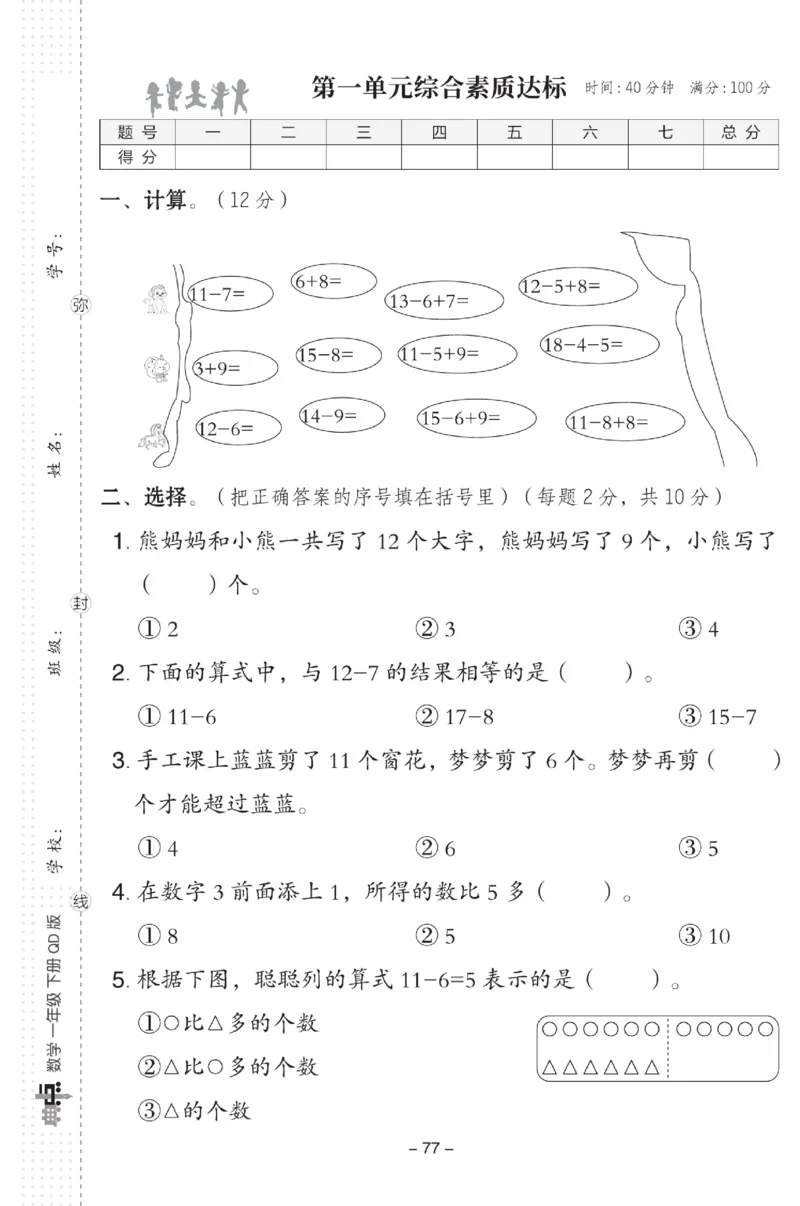 第一单元综合素质达标 时间:40分钟 满分:100分
题号 一 二 三 四 五 六 七 总分
得分
一、计算。（12分）
11−7= 6+8= 13−6+7= 12−5+8=
3+9= 15−8= 11−5+9= 18−4−5=
12−6= 14−9= 15−6+9= 11−8+8=
二、选择。（把正确答案的序号填在括号里）（每题2分，共10分）
1. 熊妈妈和小熊一共写了 12 个大字，熊妈妈写了 9 个，小熊写了
（　　）个。
① 2 ② 3 ③ 4
2. 下面的算式中，与 12−7 的结果相等的是（　　）。
① 11−6 ② 17−8 ③ 15−7
3. 手工课上蓝蓝剪了 11 个窗花，梦梦剪了 6 个。梦梦再剪（　　）
个才能超过蓝蓝。
① 4 ② 6 ③ 5
4. 在数字 3 前面添上 1，所得的数比 5 多（　　）。
① 8 ② 5 ③ 10
5. 根据下图，聪聪列的算式 11−6=5 表示的是（　　）。
①○比△多的个数
②△比○多的个数
③△的个数
○○○○○○ ○○○○○
△△△△△△
− 77 −
学号：
弥
姓名：
封
班级：
学校：
线
数学一年级下册 QD版
典点